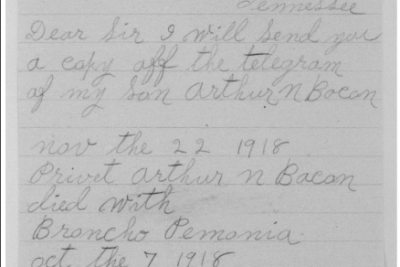 Tennessee
Dear Sir I will send you
a copy off the telegram
of my son Arthur N Bacon
nov the 22 1918
Privet Arthur N Bacon
died with
Broncho Pemonia
oct the 7 1918